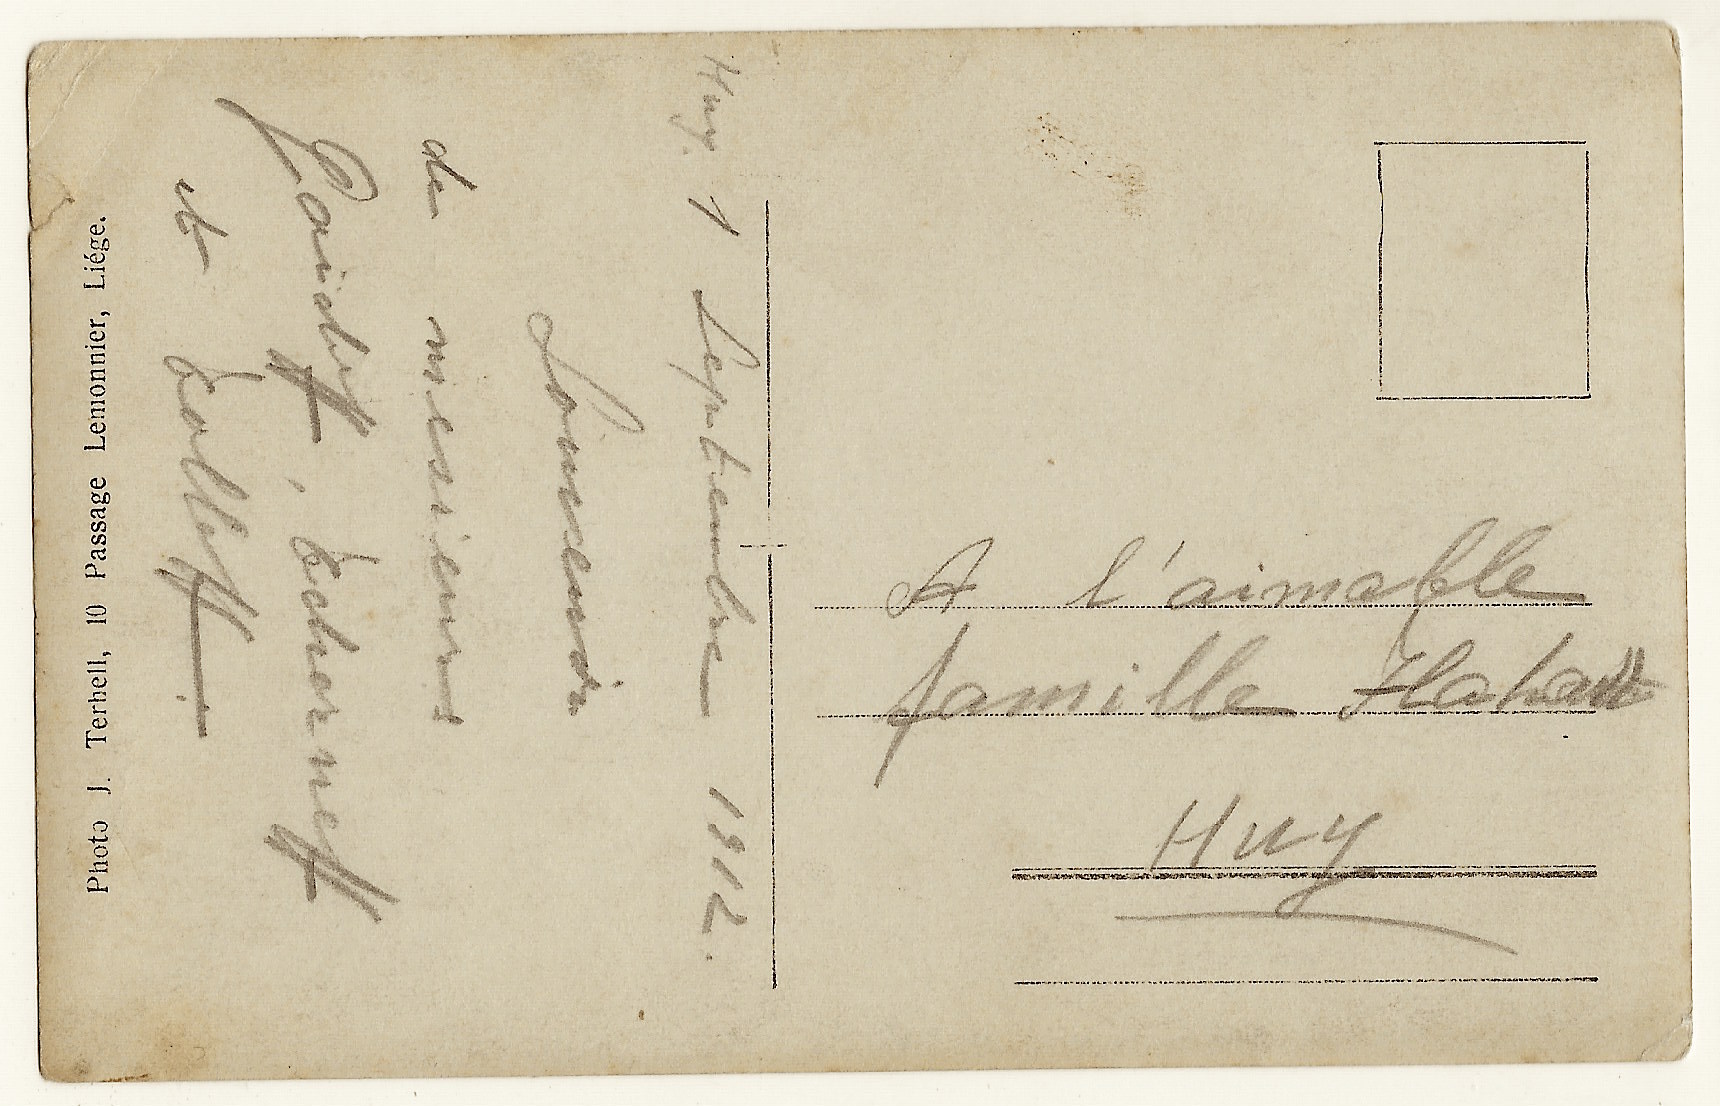 Huy. 1 Septembre 1912.
Souvenir
de messieurs
et
A l'aimable
famille
Huy
Photo J. Terhell, 10 Passage Lemonnier, Liége.